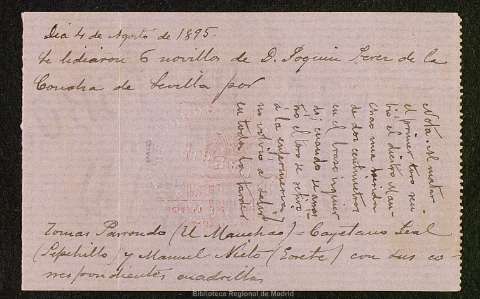 Dia 4 de Agosto de 1895.
Se lidiaron 6 novillos de D. Joquin Perez de la
Concha de Sevilla por
Nota. Al matar
el primer toro su-
frió el diestro Man-
chao una herida
de dos centimetros
en el brazo izquier
do; cuando se arras
tró el toro se retiró
á la enfermeria y
no volvió á salir
en toda la tarde
Tomas Parrondo (El Manchao) - Cayetano Leal
(Pepehillo) y Manuel Nieto (Gorete) con sus co-
rrespondientes cuadrillas
Biblioteca Regional de Madrid